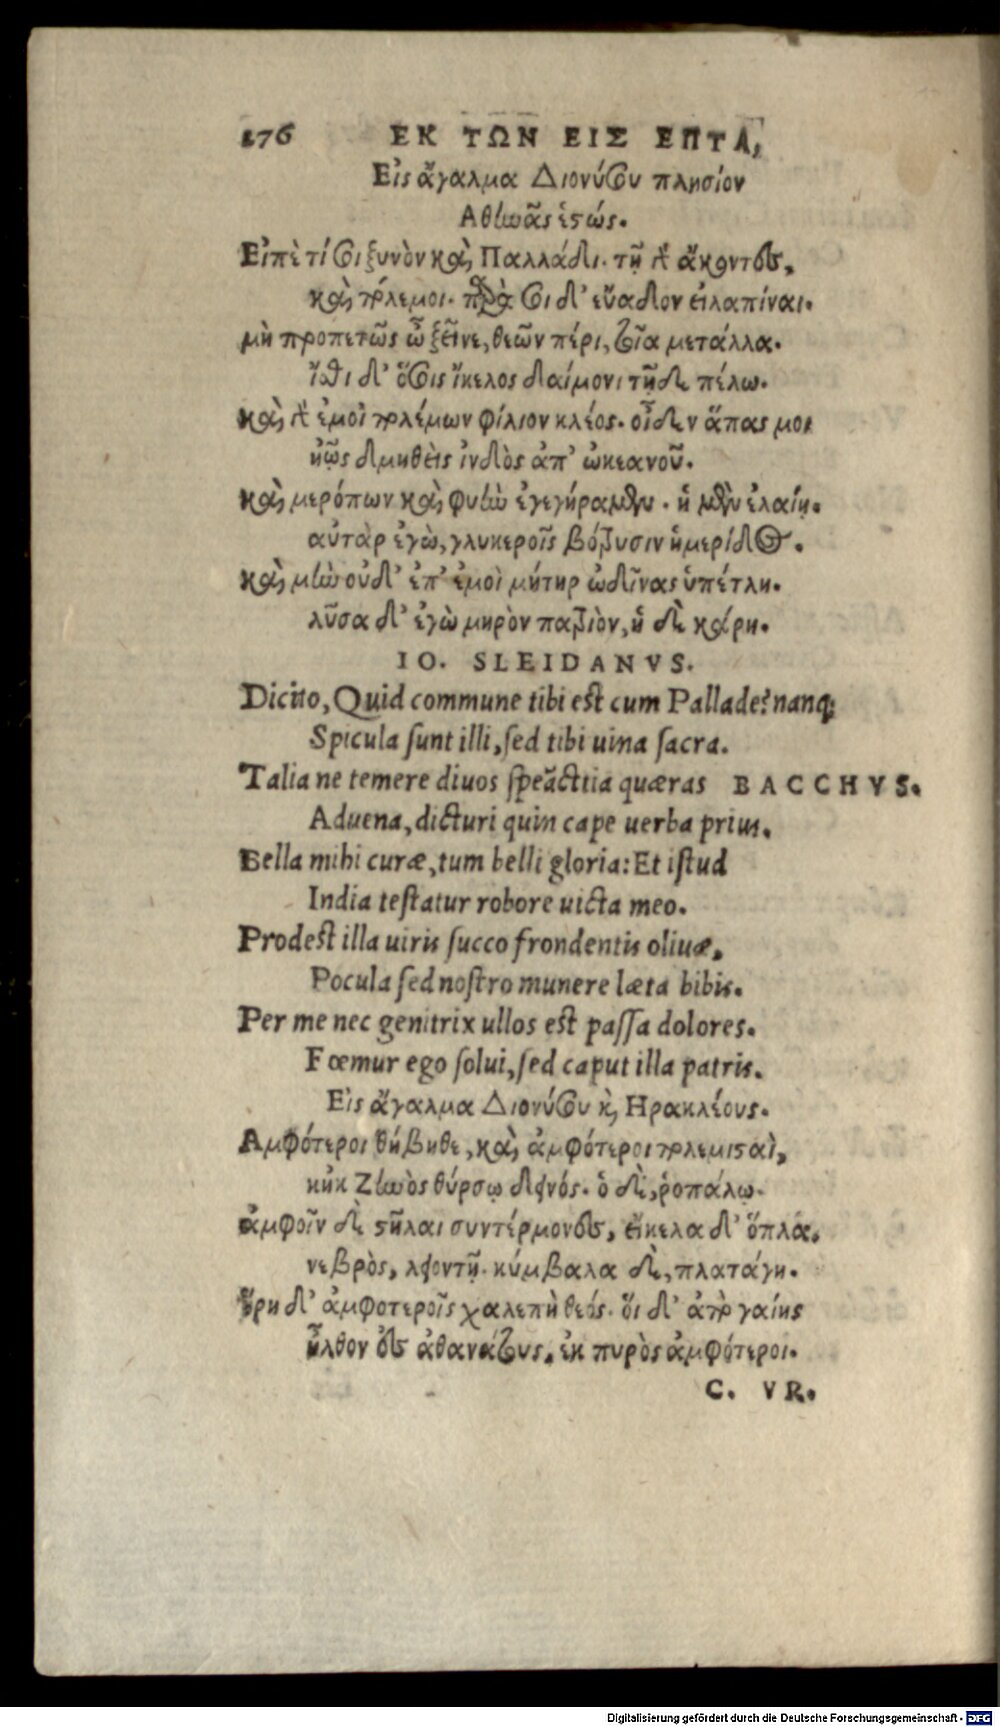 276 ΕΚ ΤΩΝ ΕΙΣ ΕΠΤΑ,
Εἰς ἄγαλμα Διονύσου πλησίον
Αθηνᾶς ἑστώς.
Εἰπὲ τί σοι ξυνὸν καὶ Παλλάδι. τῇ γὰ ἄκοντες,
καὶ πόλεμοι. παρὰ σοι δ' εὔαδον εἰλαπίναι.
μὴ προπετῶς ὦ ξεῖνε, θεῶν πέρι, τοῖα μετάλλα.
ἴσθι δ' ὅσοις ἴκελος δαίμονι τῇδε πέλω.
καὶ γὰ ἐμοὶ πολέμων φίλιον κλέος. οἶδεν ἅπας μοι
ἠῷος δμηθεὶς ἰνδὸς ἀπ' ὠκεανοῦ.
καὶ μερόπων καὶ φυλὴν ἐγεγήραμεν. ἡ μὲν ἐλαίῃ.
αὐτὰρ ἐγὼ, γλυκεροῖς βότρυσιν ἡμερίδος.
καὶ μὴν οὐδ' ἐπ' ἐμοὶ μήτηρ ὠδῖνας ὑπέτλη.
λῦσα δ' ἐγὼ μηρὸν πατρὸν, ἡ δὲ κάρη.
IO. SLEIDANVS.
Dicito, Quid commune tibi est cum Pallade? nanq;
Spicula sunt illi, sed tibi uina sacra.
Talia ne temere diuos quæras BACCHVS.
Aduena, dicturi quin cape uerba prius.
Bella mihi curæ, tum belli gloria: Et istud
India testatur robore uicta meo.
Prodest illa uiris succo frondentis oliuæ,
Pocula sed nostro munere læta bibis.
Per me nec genitrix ullos est passa dolores.
Fœmur ego solui, sed caput illa patris.
Εἰς ἄγαλμα Διονύσου κὶ Ηρακλέους.
Αμφότεροι θήβηθε, καὶ ἀμφότεροι πολεμισταὶ,
κἠκ Ζηνὸς θύρσῳ δεινός. ὁ δὲ, ῥοπάλῳ.
ἀμφοῖν δὲ στῆλαι συντέρμονες, εἴκελα δ' ὅπλα.
νεβρὸς, λεοντῇ. κύμβαλα δὲ, πλατάγη.
Ἥρη δ' ἀμφοτεροῖς χαλεπὴ θεός. ὅι δ' ἀπὸ γαίης
ἦλθον ἐς ἀθανάτους, ἐκ πυρὸς ἀμφότεροι.
C. VR.
Digitalisierung gefördert durch die Deutsche Forschungsgemeinschaft - DFG